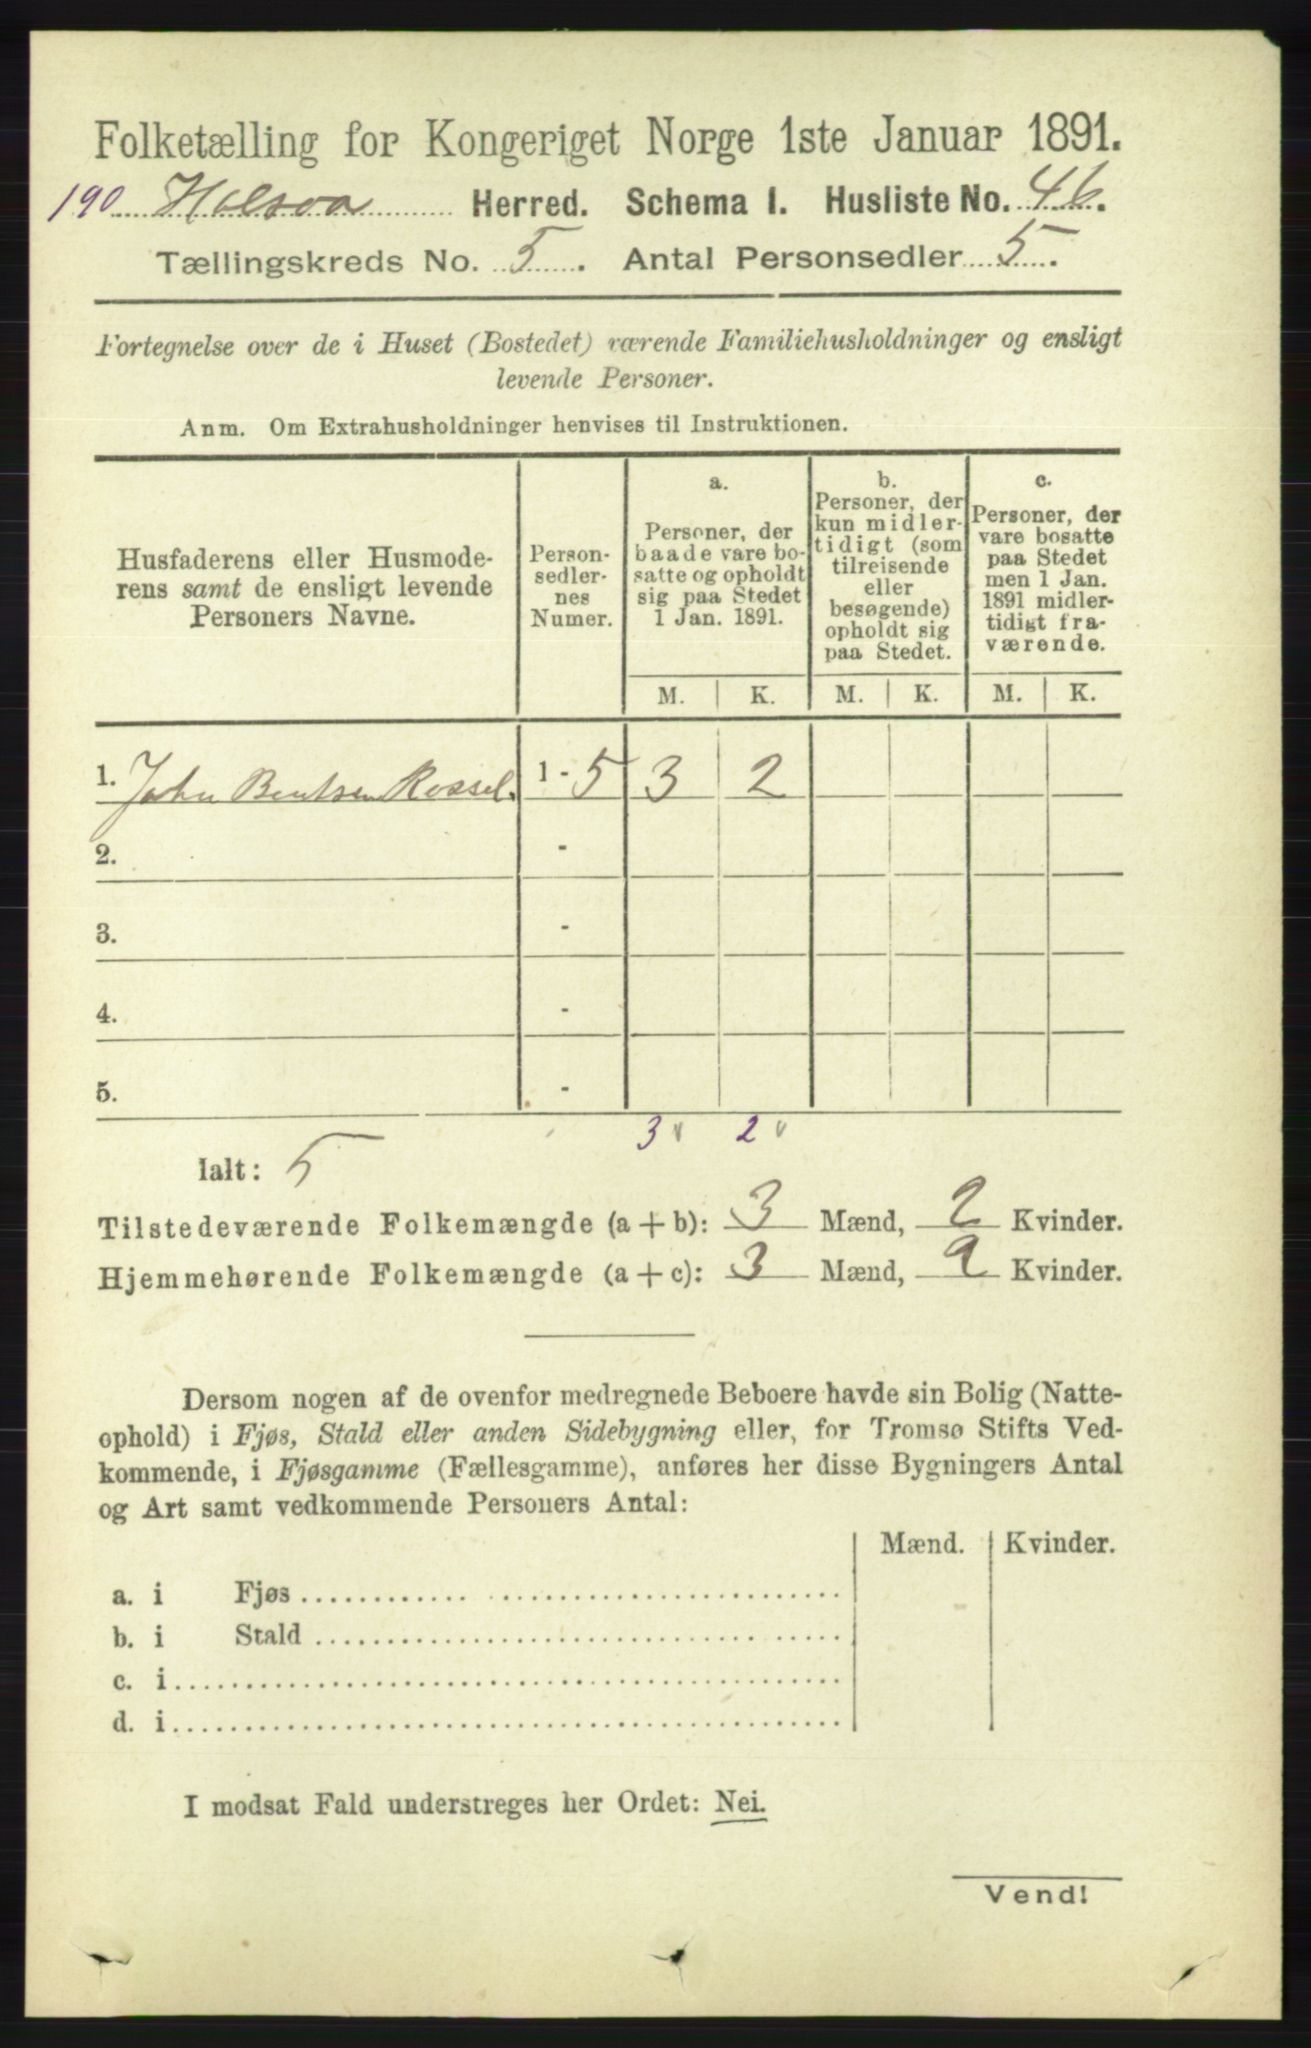 Folketælling for Kongeriget Norge 1ste Januar 1891.
190 Herred. Schema I. Husliste No. 46.
Tællingskreds No. 5. Antal Personsedler 5.
Fortegnelse over de i Huset (Bostedet) værende Familiehusholdninger og ensligt
levende Personer.
Anm. Om Extrahusholdninger henvises til Instruktionen.
Husfaderens eller Husmode-
rens samt de ensligt levende
Personers Navne.
Person-
sedler-
nes
Numer.
a.
Personer, der
baade vare bo-
satte og opholdt
sig paa Stedet
1 Jan. 1891.
b.
Personer, der
kun midler-
tidigt (som
tilreisende
eller
besøgende)
opholdt sig
paa Stedet.
c.
Personer, der
vare bosatte
paa Stedet
men 1 Jan.
1891 midler-
tidigt fra-
værende.
M. K. M. K. M. K.
1. John Bentsen Rossel. 1 - 5 3 2
2. -
3. -
4. -
5. -
3 v 2 v
Ialt: 5
Tilstedeværende Folkemængde (a + b): 3 Mænd, 2 Kvinder.
Hjemmehørende Folkemængde (a + c): 3 Mænd, 2 Kvinder.
Dersom nogen af de ovenfor medregnede Beboere havde sin Bolig (Natte-
ophold) i Fjøs, Stald eller anden Sidebygning eller, for Tromsø Stifts Ved-
kommende, i Fjøsgamme (Fællesgamme), anføres her disse Bygningers Antal
og Art samt vedkommende Personers Antal:
Mænd. Kvinder.
a. i Fjøs
b. i Stald
c. i
d. i
I modsat Fald understreges her Ordet: Nei.
Vend!